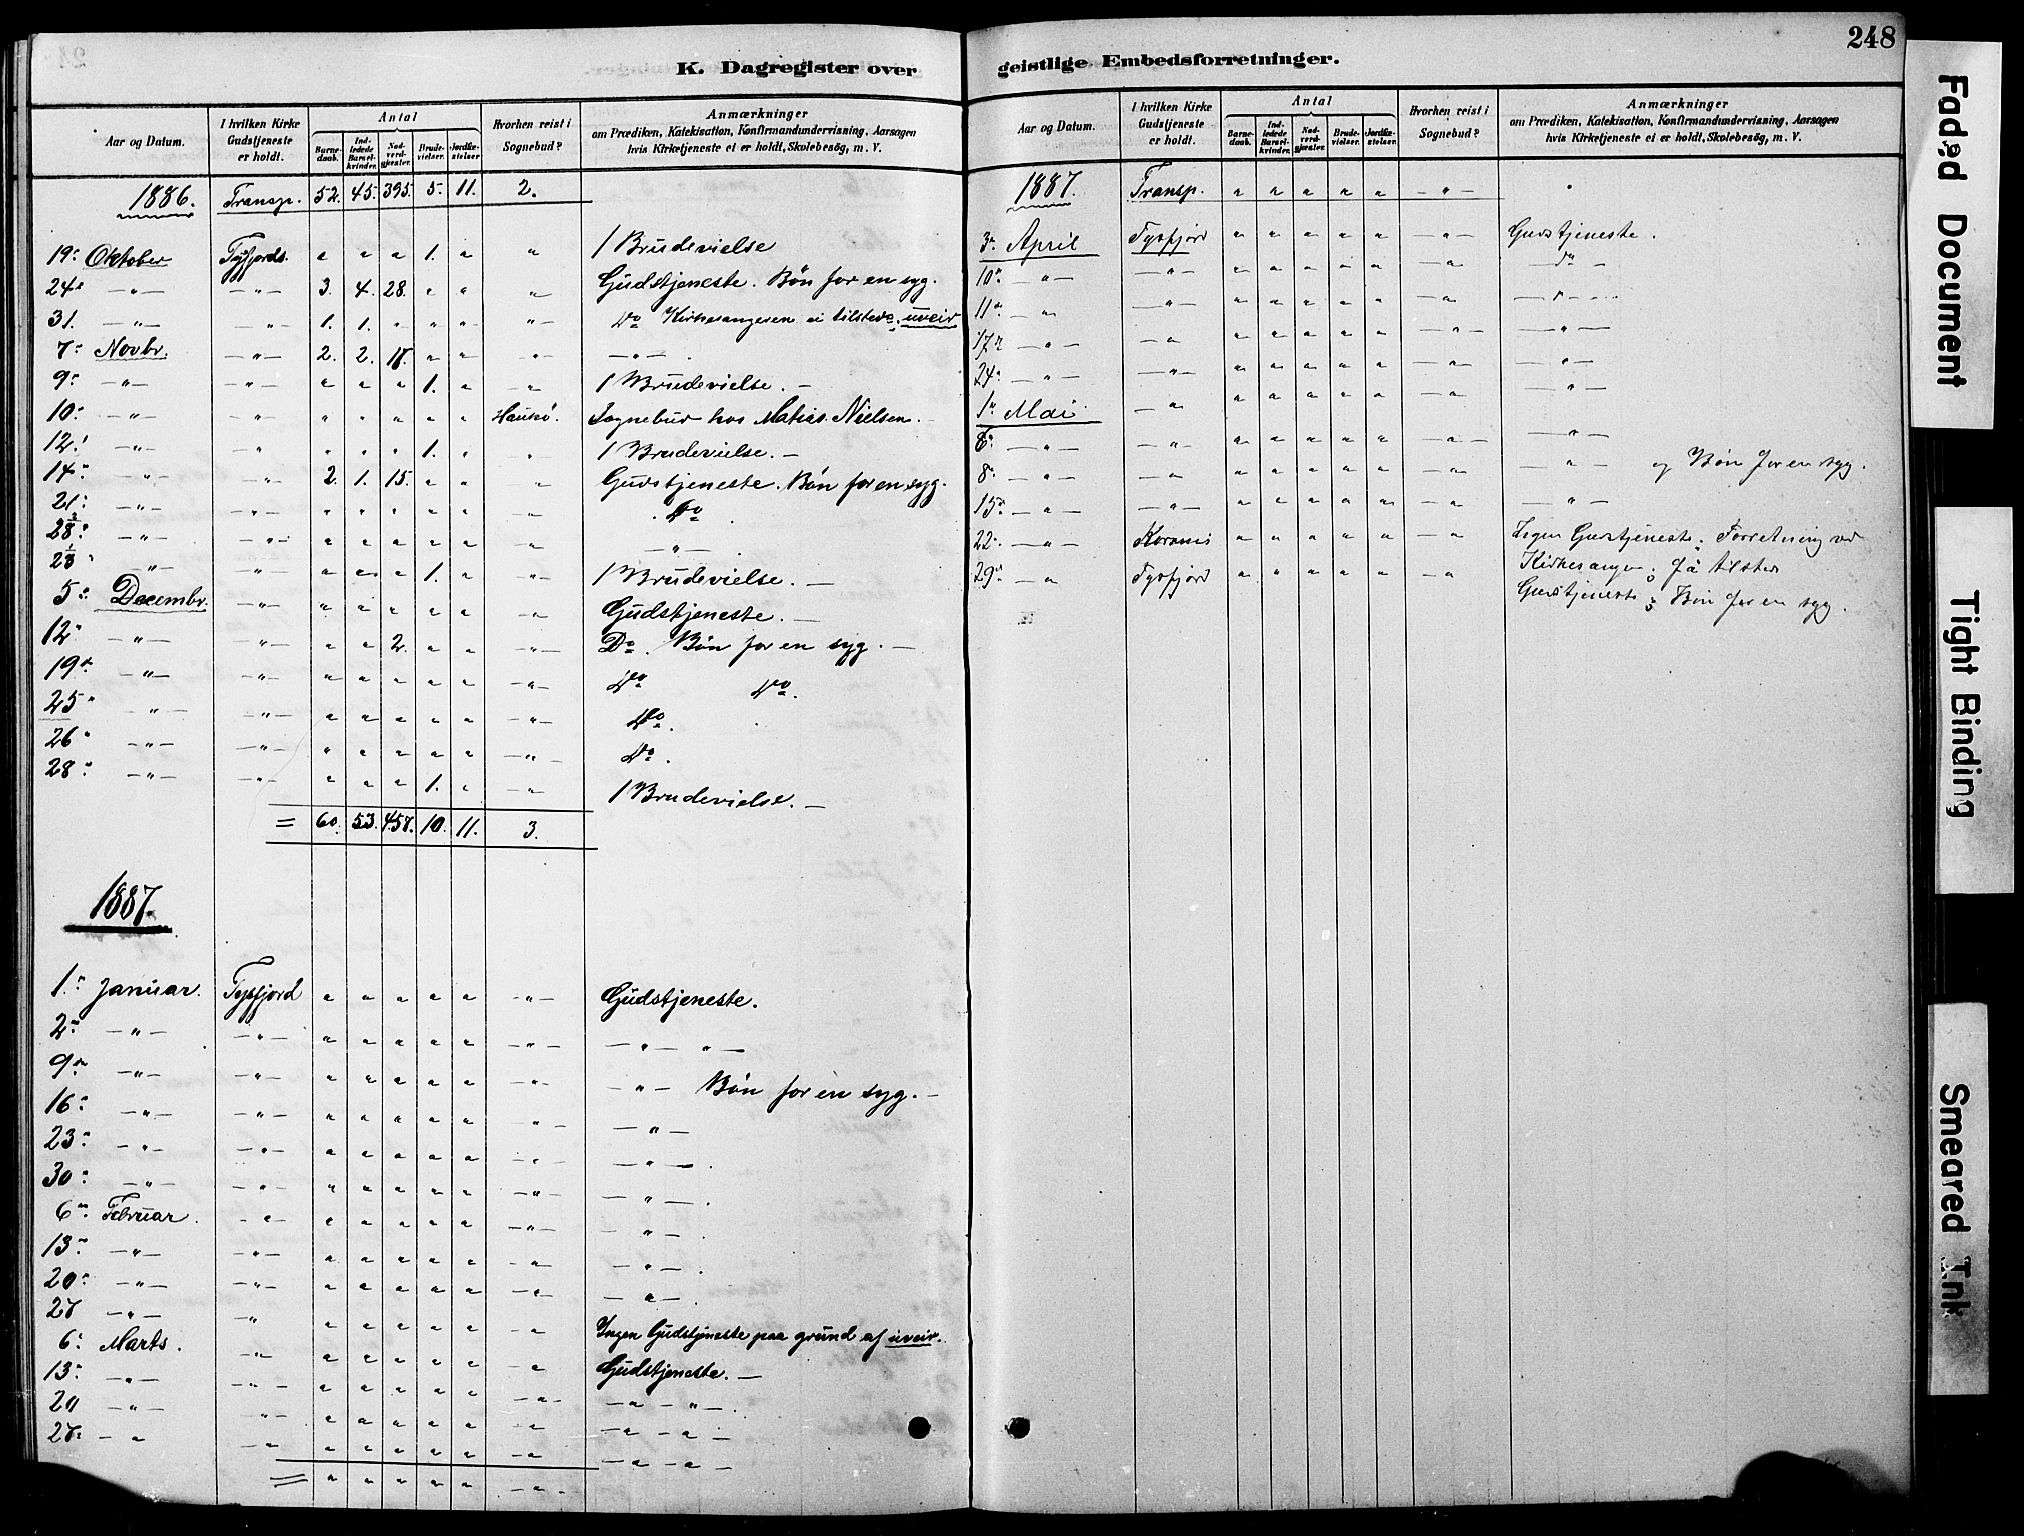 248
K. Dagregister over geistlige Embedsforretninger.
Aar og Datum. | I hvilken Kirke Gudstjeneste er holdt. | Antal | Barne-daab. | Ind-ledede Barsel-kvinder. | Nad-verd-gjæster. | Brude-vielser. | Jordfæ-stelser | Hvorhen reist i Sognebud? | Anmærkninger om Prædiken, Katekisation, Konfirmandundervisning, Aarsagen hvis Kirketjeneste ei er holdt, Skolebesög, m. V.
1886. Transp. 52. 45. 395. 5. 11. 2.
19: Oktober Tysfjords. " " " 1. " " 1 Brudevielse
24: —"— —"— 3. 4. 28. " " " Gudstjeneste. Bön for en syg.
31. —"— —"— 1. 1. " " " —"— Do Kirkesangeren ei tilstede, uveir
7: Novbr. —"— 2. 2. 18. " " —"— —"—.
9: —"— —"— " " " 1. " —"— 1 Brudevielse. —
10: —"— " " " " " " Haukö. Sognebud hos Matias Nielsen. —
12: —"— " " " " 1. " " 1 Brudevielse. —
14: —"— —"— 2. 1. 15. " " " Gudstjeneste. Bön for en syg.
21: —"— —"— " " " " " —"— Do
28: —"— —"— " " " " " —"— —"—
—"— —"— " " " 1. " —"— 1 Brudevielse. —
5: Decembr. —"— " " " " " —"— Gudstjeneste. —
12: —"— —"— " " 2. " " —"— Do. Bön for en syg. —
19: —"— —"— " " " " " —"— Do Do.
25: —"— —"— " " " " " —"— Do.
26: —"— —"— " " " " " —"— Do.
28: —"— —"— " " " 1. " —"— 1 Brudevielse. —
= 60. 53. 458. 10. 11. 3.
1887.
1: Januar. Tysfjord " " " " " —"— Gudstjeneste.
2: —"— —"— " " " " " —"— —"— "—
9: —"— —"— " " " " " —"— —"— Bön for en syg. —
16: —"— —"— " " " " " —"— —"—
23: —"— —"— " " " " " —"— —"—.
30: —"— —"— " " " " " —"— —"—.
6: Februar. —"— " " " " " —"— —"—.
13: —"— —"— " " " " " —"— —"—.
20: —"— —"— " " " " " —"— —"—.
27 —"— " " " " " " —" Ingen Gudstjeneste paa grund af uveir.
6: Marts. —"— " " " " " —" Gudstjeneste. —
13: —"— —"— " " " " " —"— —"— "—.
20 —"— —"— " " " " " —"— —"— "—
27: —" —" " " " " " —" —"— "—
= " " " " " —"—
Aar og Datum. | I hvilken Kirke Gudstjeneste er holdt. | Antal | Barne-daab. | Ind-ledede Barsel-kvinder. | Nad-verd-gjæster. | Brude-vielser. | Jordfæ-stelser. | Hvorhen reist i Sognebud? | Anmærkninger om Prædiken, Katekisation, Konfirmandundervisning, Aarsagen hvis Kirketjeneste ei er holdt, Skolebesög, m. V.
1887. Transp. " " " " " —"— "
3: April Tysfjord " " " " " —"— Gudstjeneste.
10: —"— —"— " " " " " —" —do—
11: —" —"— " " " " " —" —"—
17: —"— —" " " " " " —"— —"—
24: —"— —"— " " " " " —" —"—
1: Mai —" " " " " " —" —"—
8: —"— —"— " " " " " —"— —"—
8: —"— —" " " " " " —" —"— og Bön for en syg.
15: —"— —"— " " " " " —" —"—
22: —"— Korsnes " " " " " —" Ingen Gudstjeneste. Forretning ved
29: —" Tysfjord " " " " " —" Kirkesanger
Gudstjeneste; Bön for en syg.
Faded Document
Tight Binding
Smeared Ink